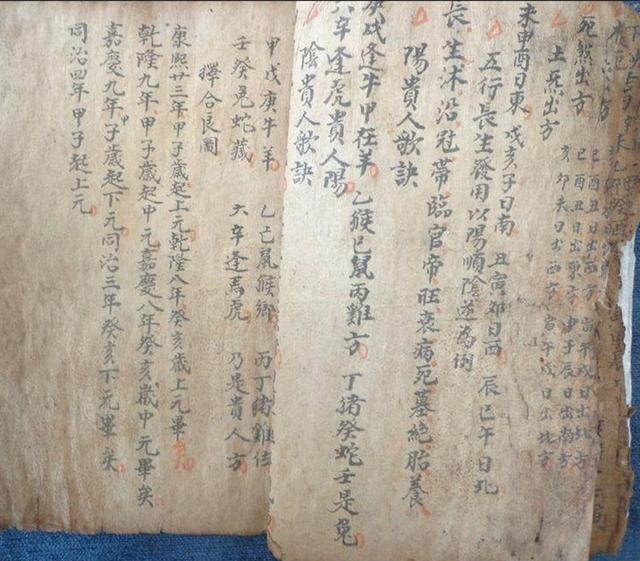 死炁出方
土炁出方
亥卯未日出西方 寅午戌日出北方
未申酉日東 戌亥子日南 丑寅卯日西 辰巳午日北
五行長生發用以陽順陰逆為例
長生沐浴冠帶臨官帝旺衰病死墓絕胎養
陽貴人歌訣
庚戌逢牛甲在羊 乙猴己鼠丙雞方 丁猪癸蛇壬是兔
六辛逢虎貴人陽
陰貴人歌訣
甲戊庚牛羊 乙己鼠猴鄉 丙丁猪雞位
壬癸兔蛇藏 六辛逢馬虎 乃是貴人方
擇合良圖
康熙廿三年甲子歲起上元乾隆八年癸亥歲上元畢
乾隆九年甲子歲起中元嘉慶八年癸亥歲中元畢矣
嘉慶九年子歲起下元同治三年癸亥下元畢矣
同治四年甲子起上元